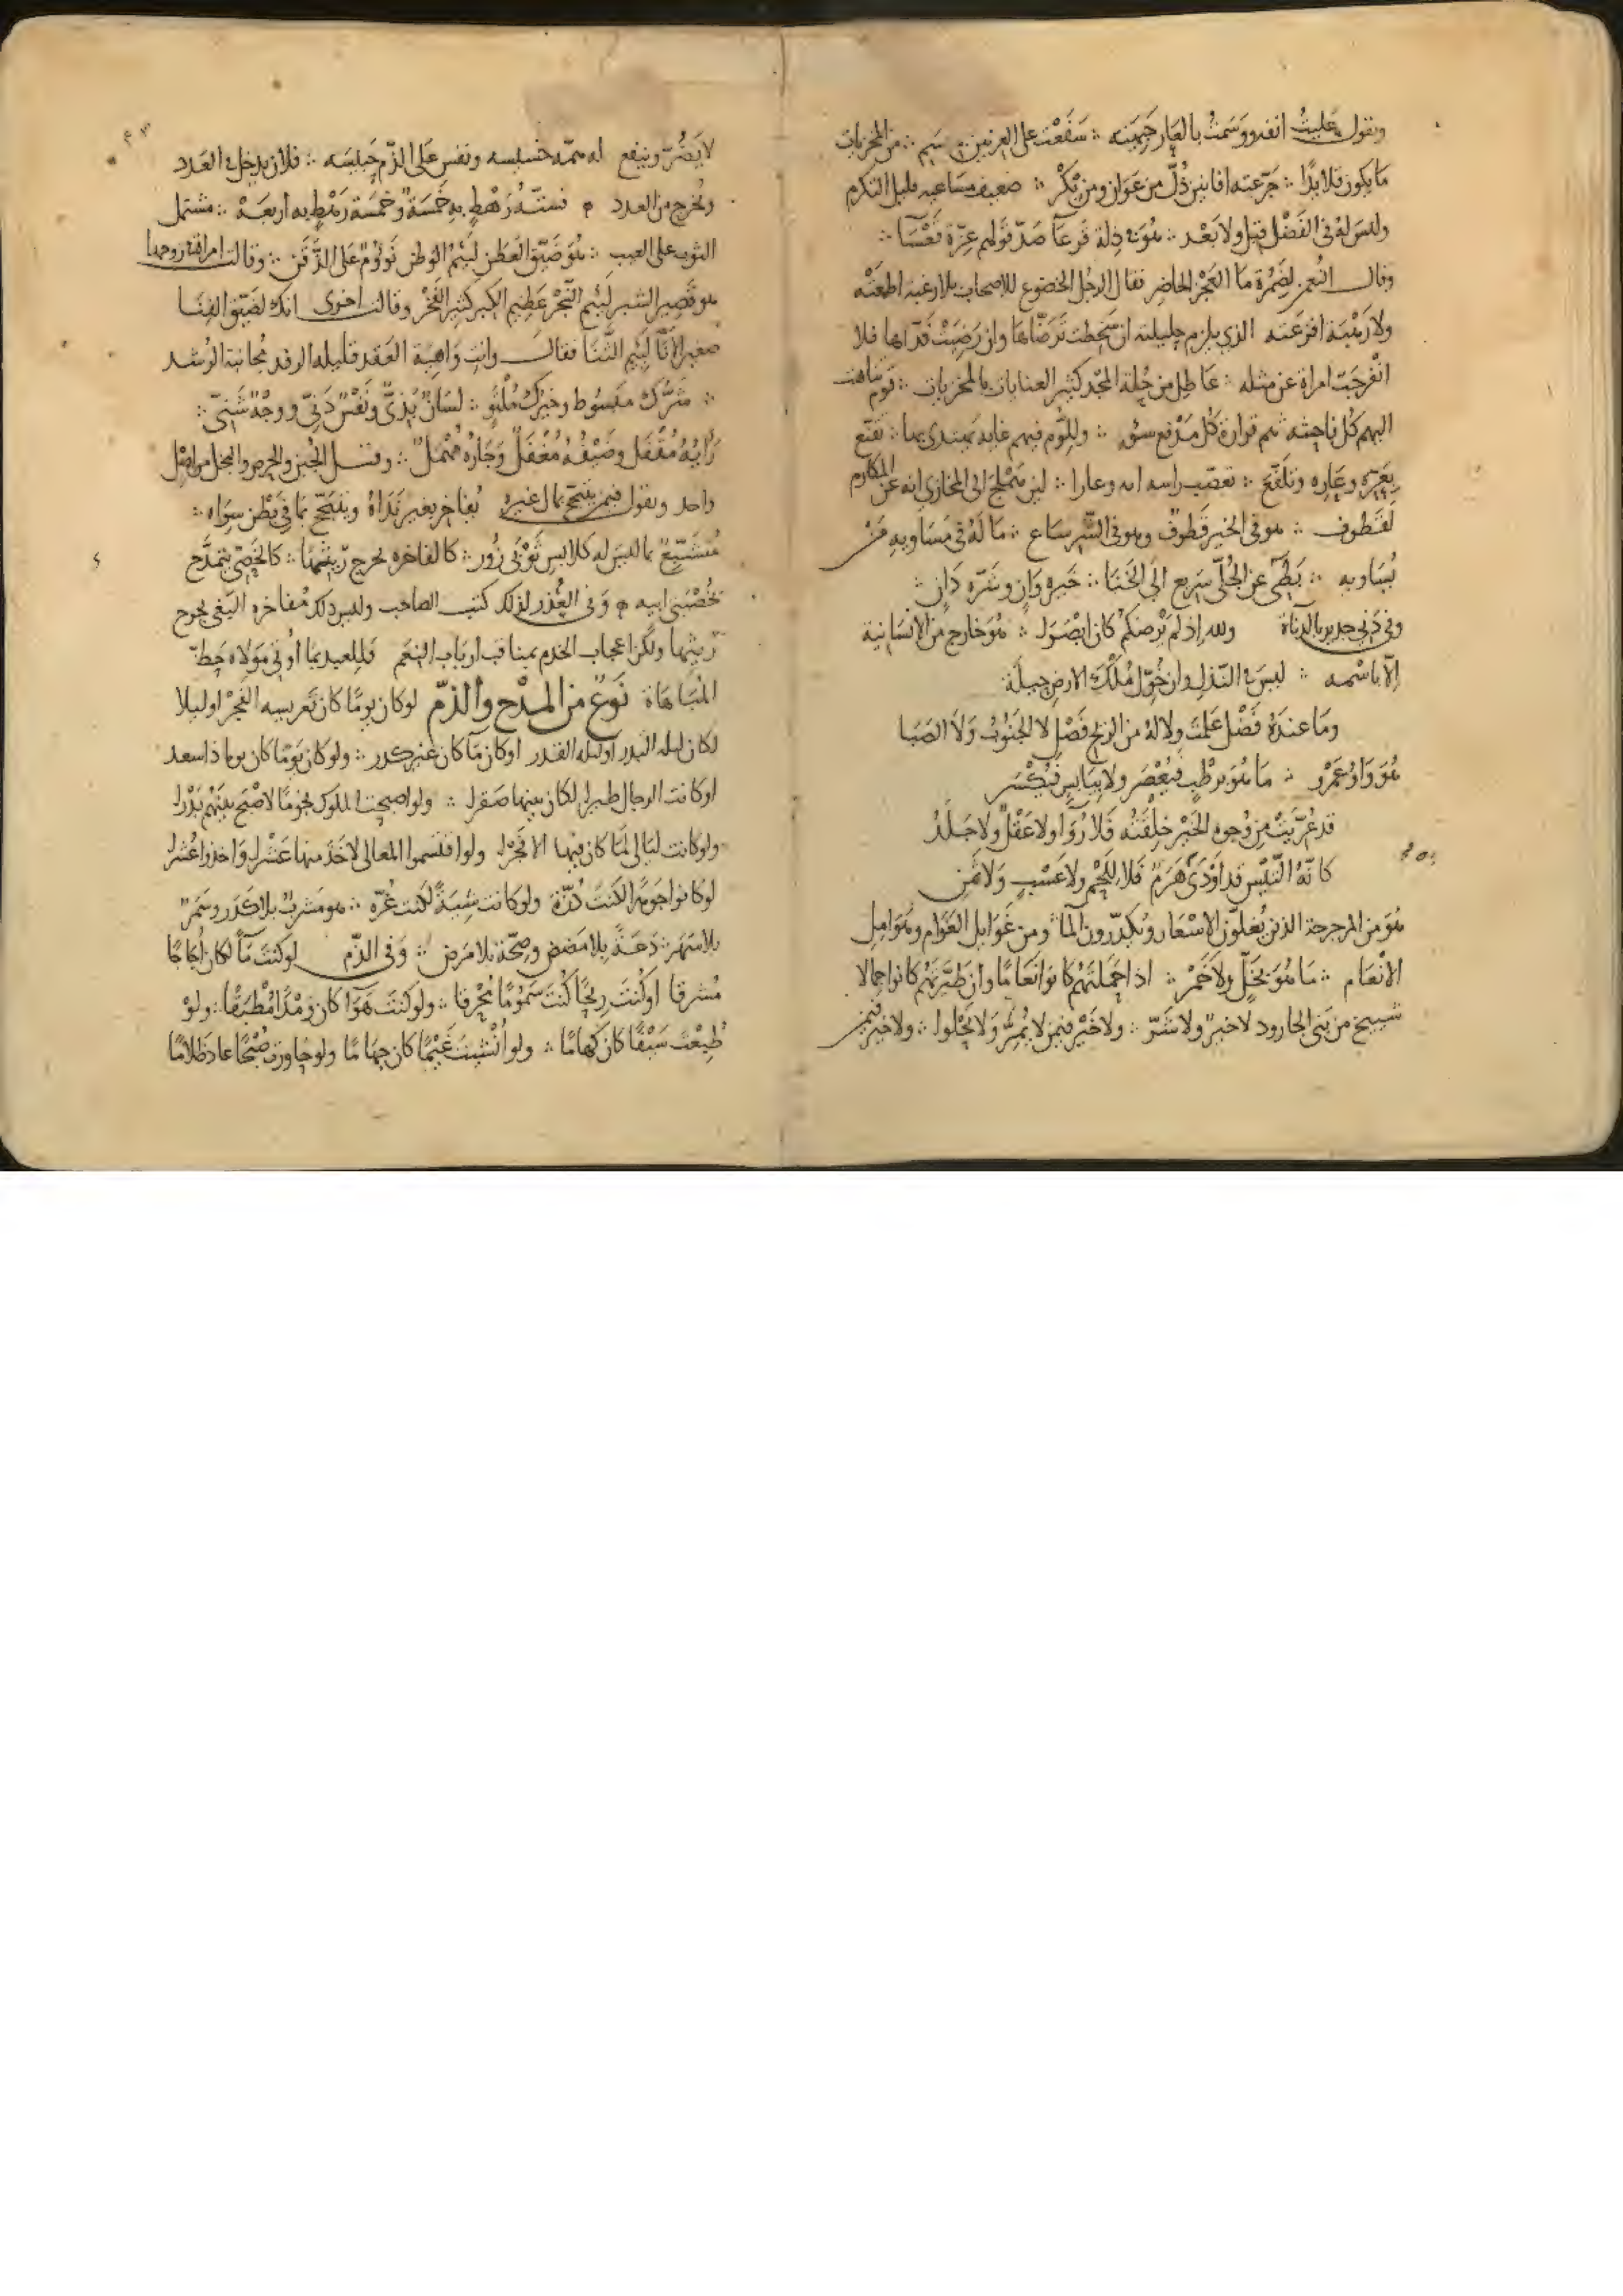 ونقول علبتُ انفه ووَسَمتُ بالعَار جَبهتَه ∴ سَفَعْت على العِرنين سِيم ∴ من المخزيات
مَا يكون قلايدًا ∴ جَرّعته افانين ذُلّ من عَوَان ومن بكر ∴ ضعيف مسَاعيه قليل التكرم
وليسَ لهُ فى الفَضْل قبل ولا بَعْد ∴ هُوَ ذلة قَرعَا ضدّ قولهم عِزّة قَعْسَا ∴
وقال النُعمن لِضَمْرة مَا العَجْز الحاضر فقال الرجُل الخضوع للاصحاب بلا رغبه اطمعَتْه
ولا رَهْبَة افزعَته الذي يلزم حليلته ان سَخِطت تَرَضّاهَا وان رَضِيَتْ فَدّاها فلا
انْفرجَت امراة عن مثله ∴ عَاطِل من حُلة المجْد كثير العنايات بالمخزيات ∴ قوم تناهت
اليهم كل فاحشه هم قرارة كل مَدْفع سوء ∴ وللُّوْم فيهم غايه يهتدى بها ∴ تقنّع
بعَرّه وعَاره وتلَفّح ∴ تعصّب راسه وعارا ∴ لين هَملجَ الى المخازي انه عن المكارم
لقَطوف ∴ هو فى الخير قَطوفٌ وهو فى الشّر سَاع ∴ مَا لَهُ فى مَسَاويه مَن
يُسَاويه ∴ بَطِىّ عن الجُلّى سَريع الى الخَنَا ∴ خَيره وَانٍ وشَرّه دَانٍ ∴
وفى دَني جدير بالدناة ولله اذ لم نُرضكم كان ابْصَرَ ∴ هُوَ خارج من الانسانية
اِلّا باسْمه ∴ ليسَ النّذل وان خُوّل مُلْكَ الارض حيلَة
ومَا عندَهُ فَضْل عَلمتَ ولا لهُ من الريح فَضْل لا الجَنُوبُ وَلَا الصَبَا
هُوَ وَاوُ عَمْرو ∴ مَا هُوَ برَطْبٍ فيُعْصَر ولا بيَابسٍ فيُكْسَر
قد عُرّيَتْ من وُجوه الخَيْر خِلْقَتُه فَلا رُوَآ ولا عَقْلٌ ولا جَلَدُ
كانّهُ التَيْس قد اَوْدَى هَرَمٌ فَلا لِلَحْم ولا عَسْبٍ وَلا ثَمَن
هُوَ من الذين يُغلوّن الاسْعَار ويُكدّرون المآ ومن غَوَايل العَوَام وهَوَامل
الانْعَام ∴ مَا هُوَ بخَلٍّ ولا خَمْر ∴ اذا حَمّلتَهم كانوا نَعَامًا وان طَيّرتَهم كانوا جمالا
شيخ من بَنى الجارود لا خيرٌ ولا شَرّ ∴ ولا خَيْر فيمن لا يُمِرُّ وَلا يَحْلُو ∴ ولا خير فيمن
لا يَضُرّ وينفع له همّه خسيسه ونفس عَلى الذّم حَبيسَه ∴ فلان يدخل العَدد
ونُخرج من العدد فستّة رَهْطٍ به خَمسَة وخَمسَة رَهْطٍ به اربعَة ∴ مشتمل
الثوب على العيب ∴ هُوَ ضَيّق العَطَن لئيم الوطن نَوُوْمٌ عَلى الذَّقَن ∴ وقالت امراة زوجها
هو قَصير الشبر لئيم النَّجْر عَظيم الكبر كثير الفَخْر وقالت اخرى انك لضَيّق الفِنَا
صغير الاِنَا لئيم الثَّنَا فقال وانتِ وَاهيَة العَقد قليله الرفد مُجانبة الرُشد
∴ شرُّك مبسُوط وخيرُك مُلْتَوٍ ∴ لسَانٌ بَذىّ ونَفْسٌ دَنىّ ووجْهٌ شَنىّ ∴
رَايهُ مُقْفَل وضَيْفُه مُغْفَل وَجَارُه مُهمَل ∴ وقيل الجُبن والحرص والبخل من اصْل
واحد ونقول فيمن يتبجّح بمال غيره يُفاخر بغير نَدَاهُ ويتبجّح بمَا فى بَطْن سِوَاه ∴
مُتشَبّعٌ بما ليس له كلابس ثَوْبَى زُور ∴ كالفاخره بحِرج ربّتهَا ∴ كالخَصىّ يتمدّح
بخُصْيَىْ ابيه وَفى العُذر لذلك كتب الصاحب وليس ذلك مُفاخره البَغى بحِرح
ربّتها ولكن اعجاب الخدم بمناقب ارباب النعَم فللعبد بما اُوتى مَوْلاه حَظّ
المُبَاهَاة نَوْعٌ من المدْح والذّمّ لو كان يومًا كان تَعريسه الفَجْر او ليلا
لكان ليله البدر او ليله القدر او كان مآ كان غير كدر ∴ ولو كان يَومًا كان يوما ذا سعد
او كانت الرجال طيرا لكان بينها صَقرا ∴ ولو اصبحت الملوك نجومًا لاصْبَح بينهُم بَدْرا
ولو كانت ليَالى لمَا كان فيها الا فَجْرا ولو اقتسموا المعالى لاخَذ منها عَشْرا وَاخذوا عُشرا
لو كانوا جَوهَرا لكنتَ دُرّة ولو كانت شِيَةً لكنت غُرّه ∴ هو مَشربٌ بلا كَدَر وسَمَرٌ
بلا سَهَر ∴ دَعَةٌ بلا مَضض وصِحّة بلا مَرَض ∴ وَفى الذّم لو كنتَ مَآ لكان اُجَاجًا
مُشرقا او كُنتَ ريحًا كُنتَ سَمُومًا مُحْرقا ∴ ولو كنت هَوَآ كان وَمْدًا مُطبقًا ∴ ولوْ
طُبِعْتَ سَيْفًا كان كَهامًا ∴ ولو اُنْشِيتَ غَيْمًا كان جَهَامًا ولو جاورت صُبْحًا عاد ظَلَامًا